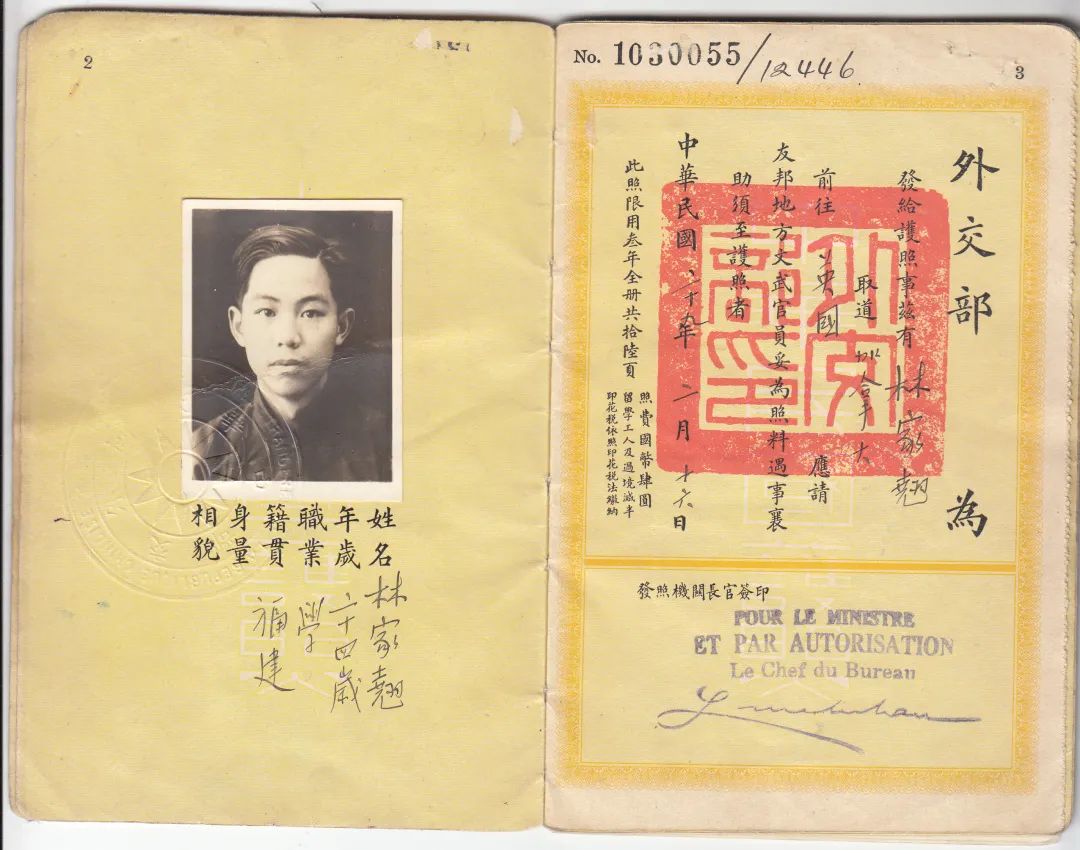 2
姓名 林家翹
年歲 二十四歲
職業 學
籍貫 福建
身量
相貌
No. 1030055/12446
3
外交部 為
發給護照事茲有 林家翹
取道 加拿大
前往 英國 應請
友邦地方文武官員妥為照料遇事襄
助須至護照者
中華民國 二十九年 二月 十六日
此照限用叁年全册共拾陸頁
照費國幣肆圓
留學工人及過境減半
印花稅依照印花稅法繳納
外交部印
發照機關長官簽印
POUR LE MINISTRE
ET PAR AUTORISATION
Le Chef du Bureau